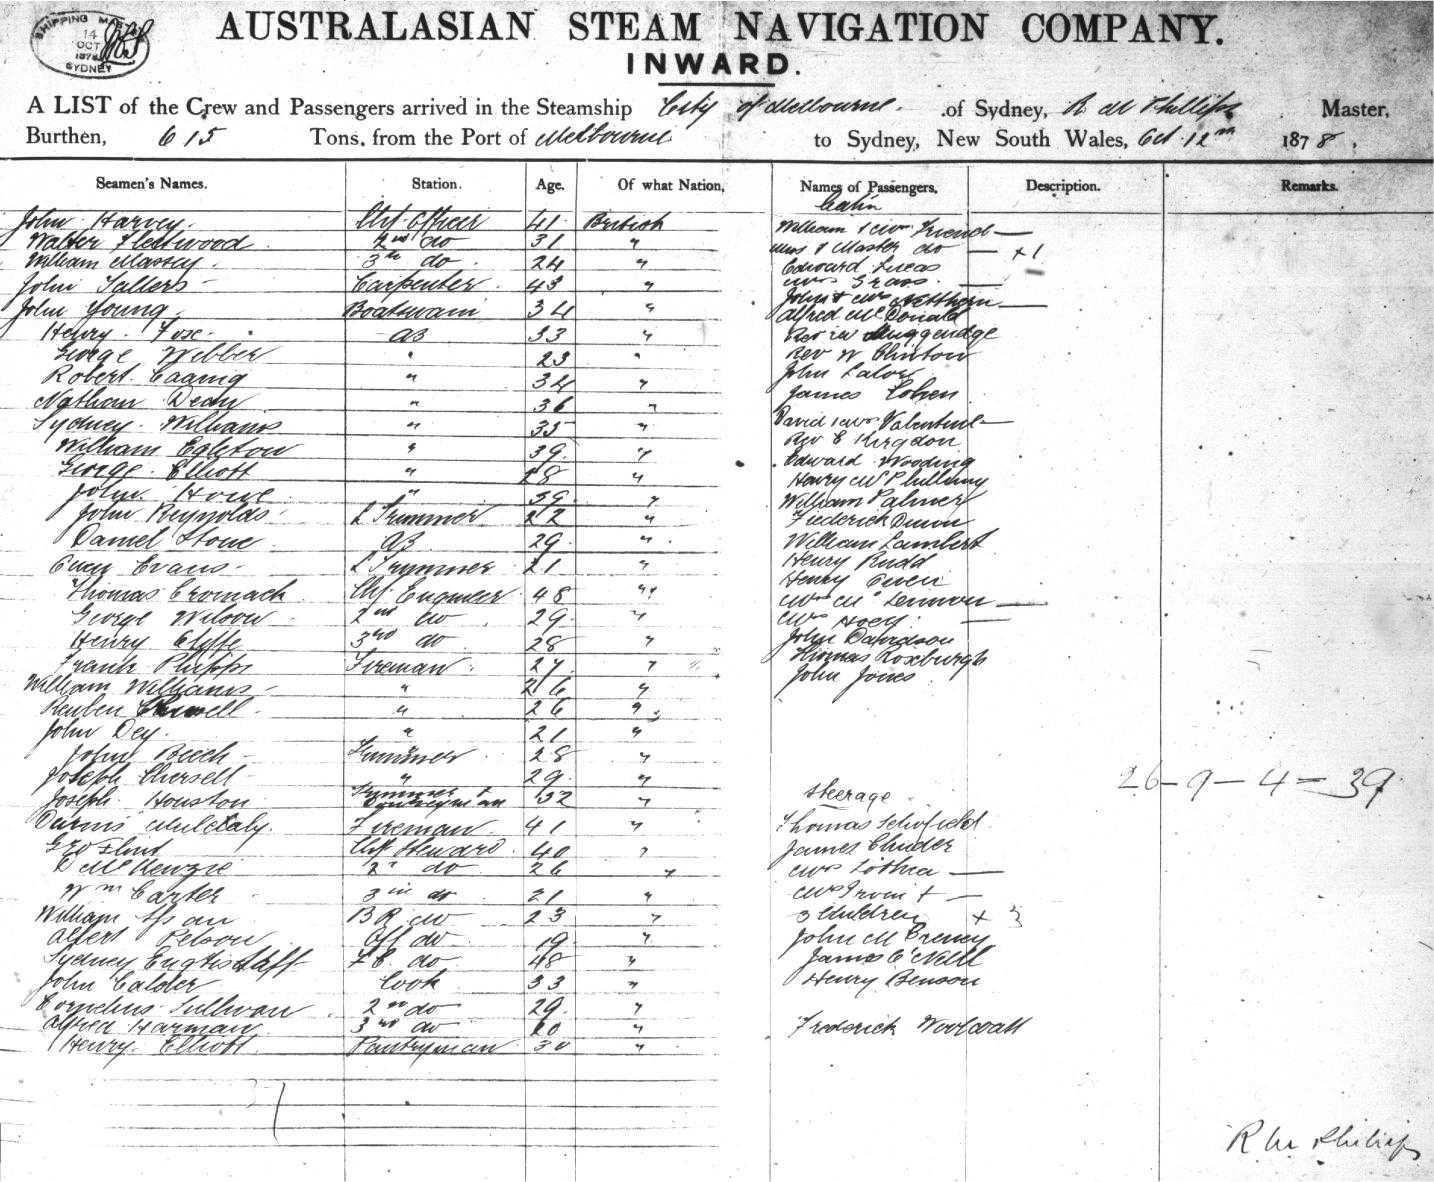 SHIPPING MAS
14
OCT
1878
SYDNEY
AUSTRALASIAN STEAM NAVIGATION COMPANY.
INWARD.
A LIST of the Crew and Passengers arrived in the Steamship City of Melbourne. of Sydney, R M Phillips Master,
Burthen, 615 Tons, from the Port of Melbourne to Sydney, New South Wales, Oct. 12th 1878,
Seamen's Names. Station. Age. Of what Nation,
John Harvey. Chf Officer 41 British
Walter Fleetwood 2nd do 31 "
William Massey. 3rd do 24 "
John Sallers Carpenter 43 "
John Young Boatswain 34 "
Henry Fox AB 33 "
George Webber " 23 "
Robert " 34 "
Nathan Dean " 36 "
Sydney Williams " 35 "
William Egleton " 39 "
George Elliott " 28 "
John Howe " 39 "
John Reynolds L Trimmer 22 "
Daniel Stone AB 29 "
Evans L Trimmer 21 "
Thomas Cromack Chf Engineer 48 "
George Wilson 2nd do 29 "
Henry Cliffe 3rd do 28 "
Frank Phipps Fireman 27 "
William Williams " 26 "
Reuben " 26 "
John Dey. " 21 "
John Beech Trimmer 28 "
Joseph " 29 "
Joseph Houston Trimmer & 32 "
Fireman 41 "
Chf Steward 40 "
D McKenzie 2nd do 26 "
Wm Carter 3rd do 21 "
William BR do 23 "
Albert do 19 "
Sydney do 48 "
John Calder Cook 33 "
Cornelius Sullivan 2nd do 29 "
Alfred Harman 3rd do 20 "
Henry Elliott Pantryman 30 "
Names of Passengers, Description. Remarks.
Cabin
William & Mrs Friend —
Miss & Master do — + 1
Edward Lucas
Mrs Grass —
John & Mrs —
Alfred McDonald
Rev
Rev W Clinton
John Lalor
James Cohen
David & Mrs Valentine —
Rev E
Edward Wooding
Henry
William Palmer
Frederick
William Lambert
Henry Rudd
Henry Owen
Mrs McLennon —
Mrs Hoey —
John Davidson
Thomas Roxburgh
John Jones
26 - 9 - 4 = 39
Steerage
Thomas Schofield
James
Mrs —
Mrs Irvin + —
3 Children + 3
John
James O'Neill
Henry Benson
Frederick
R M Phillips